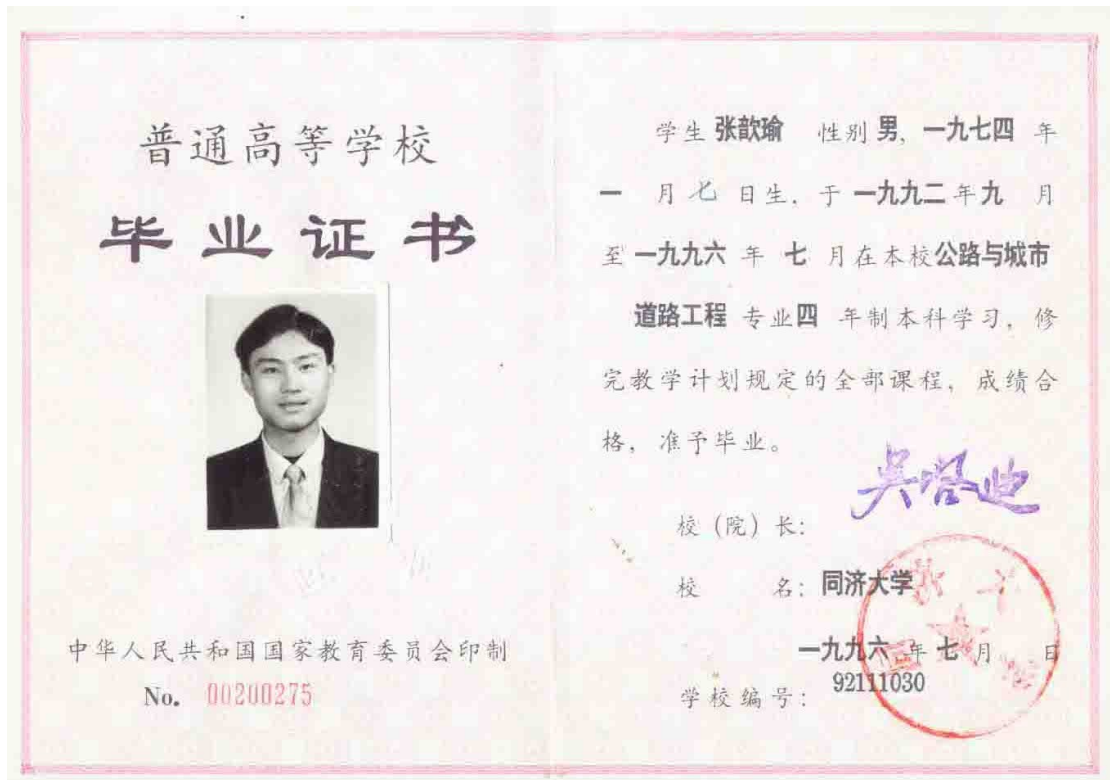 普通高等学校
毕业证书
中华人民共和国国家教育委员会印制
No. 00200275
学生 张歆瑜 性别 男, 一九七四 年
一 月 七 日生, 于 一九九二 年 九 月
至 一九九六 年 七 月在本校 公路与城市
道路工程 专业 四 年制本科学习, 修
完教学计划规定的全部课程, 成绩合
格, 准予毕业。
吴启迪
校(院)长:
校 名: 同济大学
一九九六 年 七 月 日
学校编号: 92111030